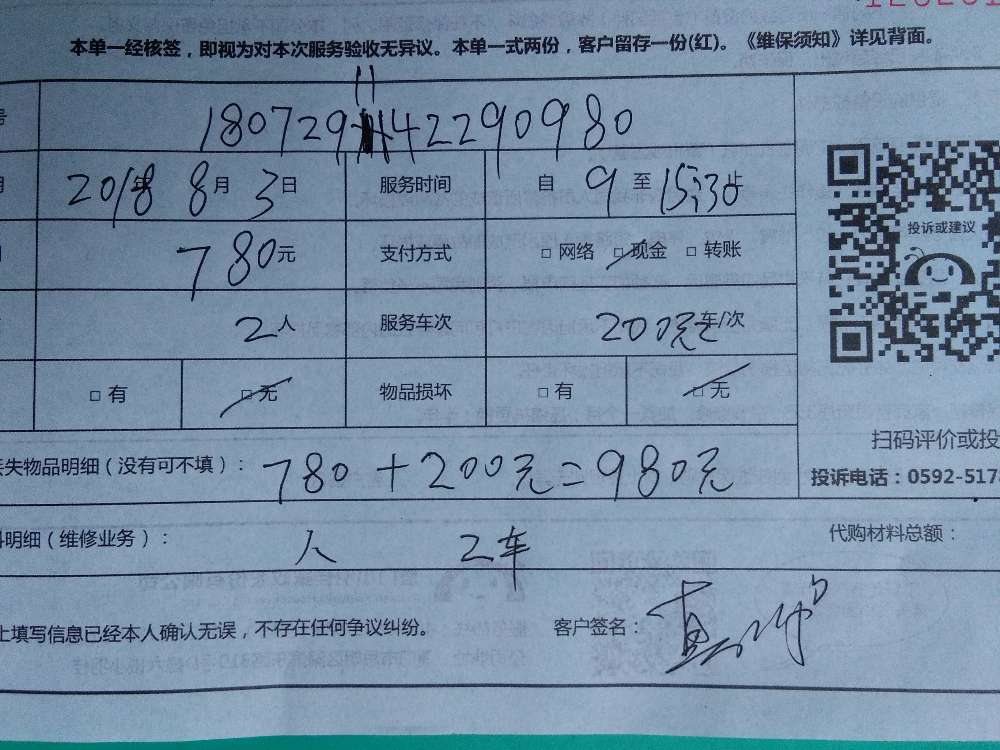 本单一经核签，即视为对本次服务验收无异议。本单一式两份，客户留存一份(红)。《维保须知》详见背面。
号 1807291142290980
月 2018年 8月 3日 服务时间 自 9 至 15:30点
780元 支付方式 □ 网络 □ 现金 □ 转账
2人 服务车次 200元 车/次
□ 有 □ 无 物品损坏 □ 有 □ 无
投诉或建议
扫码评价或投
失物品明细（没有可不填）： 780+200元=980元
投诉电话：0592-5178
明细（维修业务）： 人 2车 代购材料总额：
上填写信息已经本人确认无误，不存在任何争议纠纷。 客户签名：